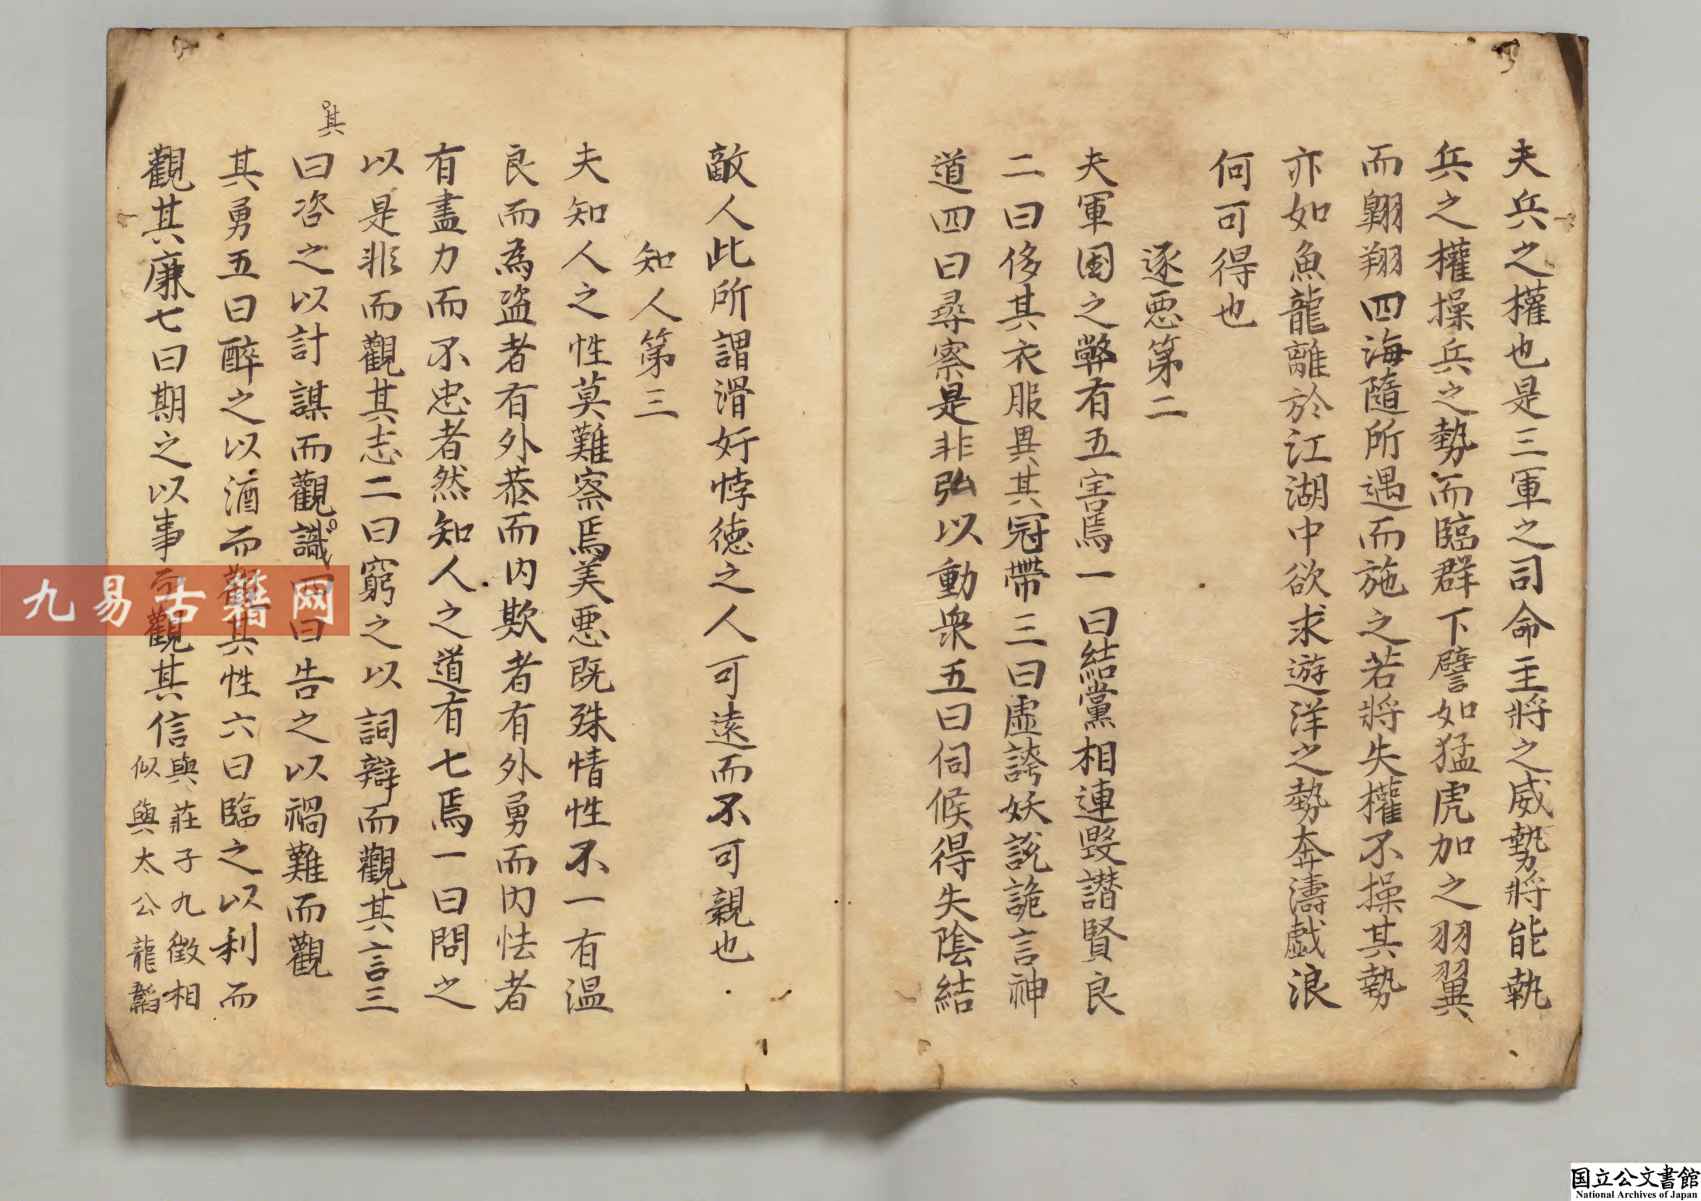 夫兵之權也是三軍之司命主將之威勢將能執
兵之權操兵之勢而臨群下譬如猛虎加之羽翼
而翺翔四海隨所遇而施之若將失權不操其勢
亦如魚龍離於江湖中欲求遊洋之勢奔濤戯浪
何可得也
逐悪第二
夫軍国之弊有五害焉一曰結黨相連毀譖賢良
二曰侈其衣服異其冠帶三曰虚誇妖説詭言神
道四曰尋察是非弘以動衆五曰伺候得失陰結
敵人此所謂滑奸悖徳之人可遠而不可親也
知人第三
夫知人之性莫難察焉美悪既殊情性不一有温
良而為盗者有外恭而内欺者有外勇而内怯者
有盡力而不忠者然知人之道有七焉一曰問之
以是非而觀其志二曰窮之以詞辯而觀其言三
曰咨之以計謀而觀識四曰告之以禍難而觀
其
其勇五曰醉之以酒而觀其性六曰臨之以利而
觀其廉七曰期之以事而觀其信
與莊子九徴相
似與太公龍韜
九易古籍网
国立公文書館
National Archives of Japan